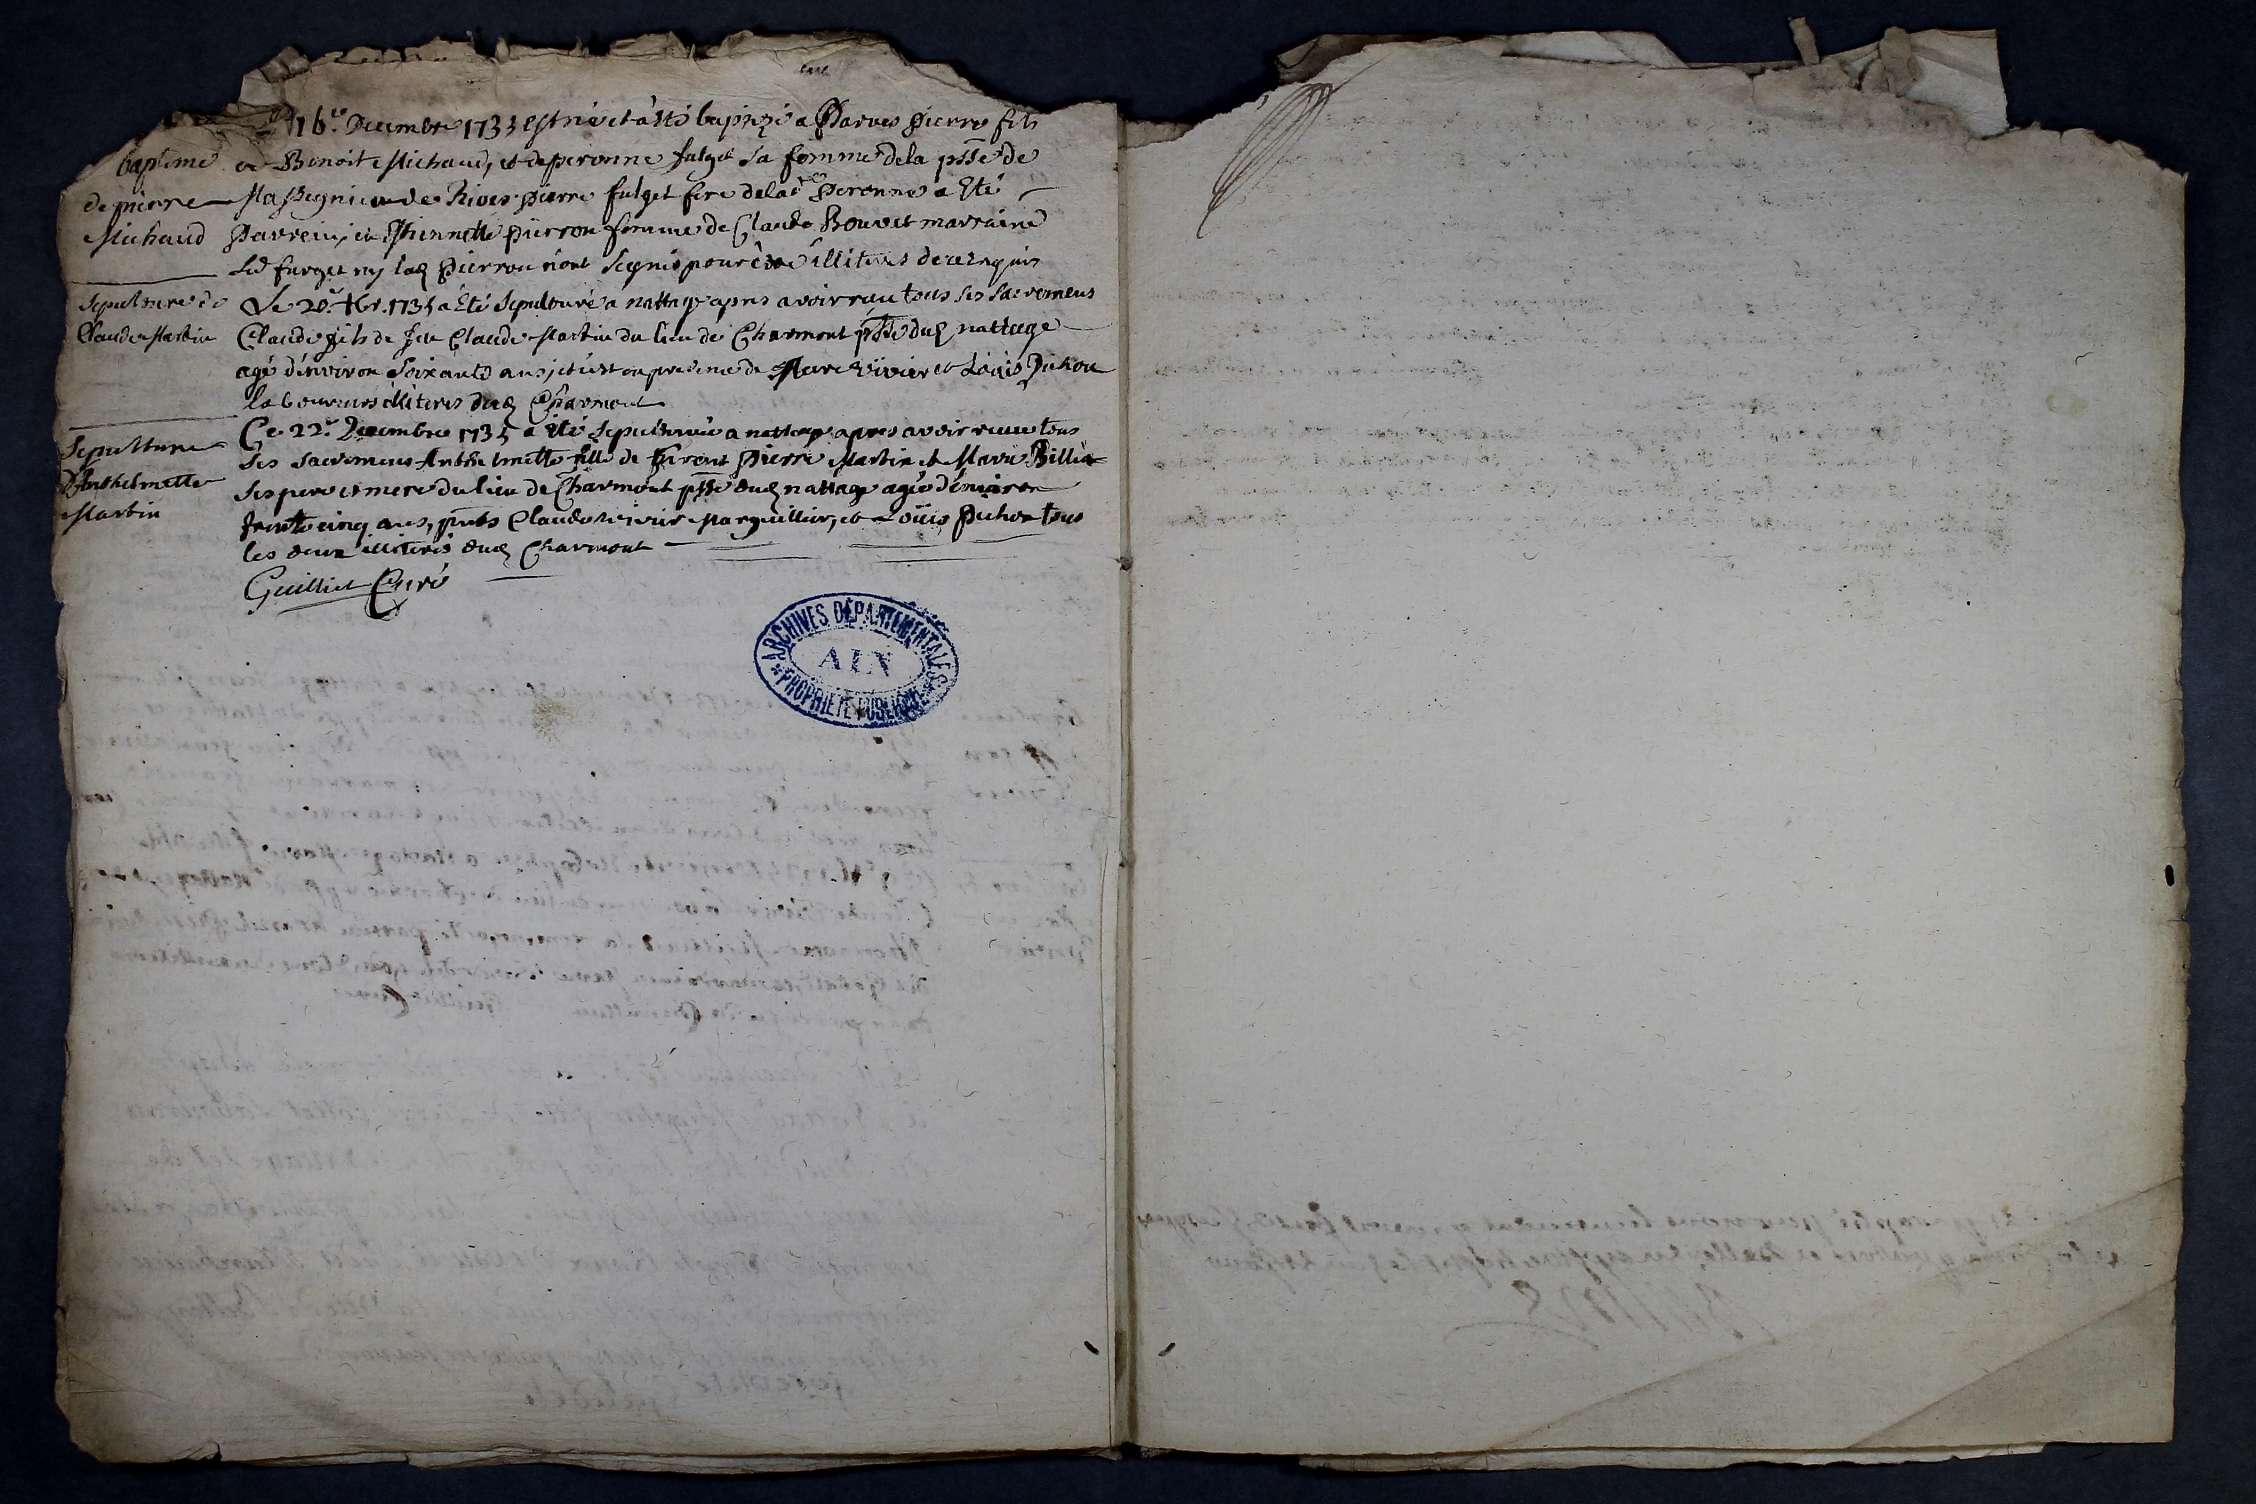 16.e Decembre 1735 est né et a Eté baptizé a Parves Pierre fils
baptême
de pierre
Michaud
de Benoit Michaud, et de peronne fulget sa femme de la psse de
Massignieu de Rives pierre fulget fere de la d Peronne a Eté
Parrein, et Thiennette pierron femme de Claude Bouvet marraine
Led furget ny lad Pierron n'ont signé pour être illiterés de ce requis
Sepulture de
Claude Martin
Le 20.e Xbr. 1735 a Eté Sepulturé a nattage apres avoir receu tous ses sacremens
Claude fils de feu Claude Martin du lieu de Charmont psse dud nattage
agé d'environ soixante ans, et c'est en presence de Marc vivier et Loüis Pichon
laboureurs illiteres dud Charmont
Sepulture
d'Anthelmette
Martin
Ce 22.e Decembre 1735 a Eté Sepulturée a nattage apres avoir receu tous
ses sacremens Anthelmette fille de Pierre Martin et Marie Billia
ses pere et mere du lieu de Charmont psse dud nattage agée d'environ
trente cinq ans, pnts Claude vivier Marguillier, et Loüis Pichon tous
les deux illiterés dud Charmont
Guilliet Curé
ARCHIVES DÉPARTEMENTALES
AIN
PROPRIÉTÉ PUBLIQUE